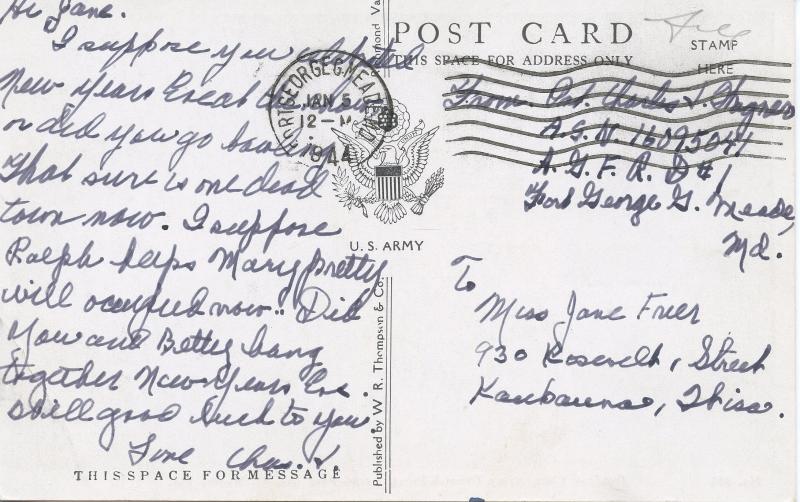 Hi Jane.
I suppose you
New Years
or did you go
That sure is one dead
town now. I suppose
Ralph keeps Mary pretty
will occupied now. Did
You and Betty bang
together New Years Eve
still good luck to you.
Love Chas. V.
THIS SPACE FOR MESSAGE
Published by W. R. Thompson & Co.
mond Va.
FORT GEORGE G. MEADE MD
JAN 5
12-M
1944
U. S. ARMY
POST CARD
THIS SPACE FOR ADDRESS ONLY
Free
STAMP
HERE
From Pvt. Charles
A.S.N. 16095041
A.G.F.R.D #1
Fort George G. Meade,
Md.
To
Miss Jane Frier
930 Street